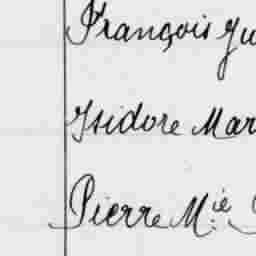 François Ju
Isidore Mar
Pierre M.ie